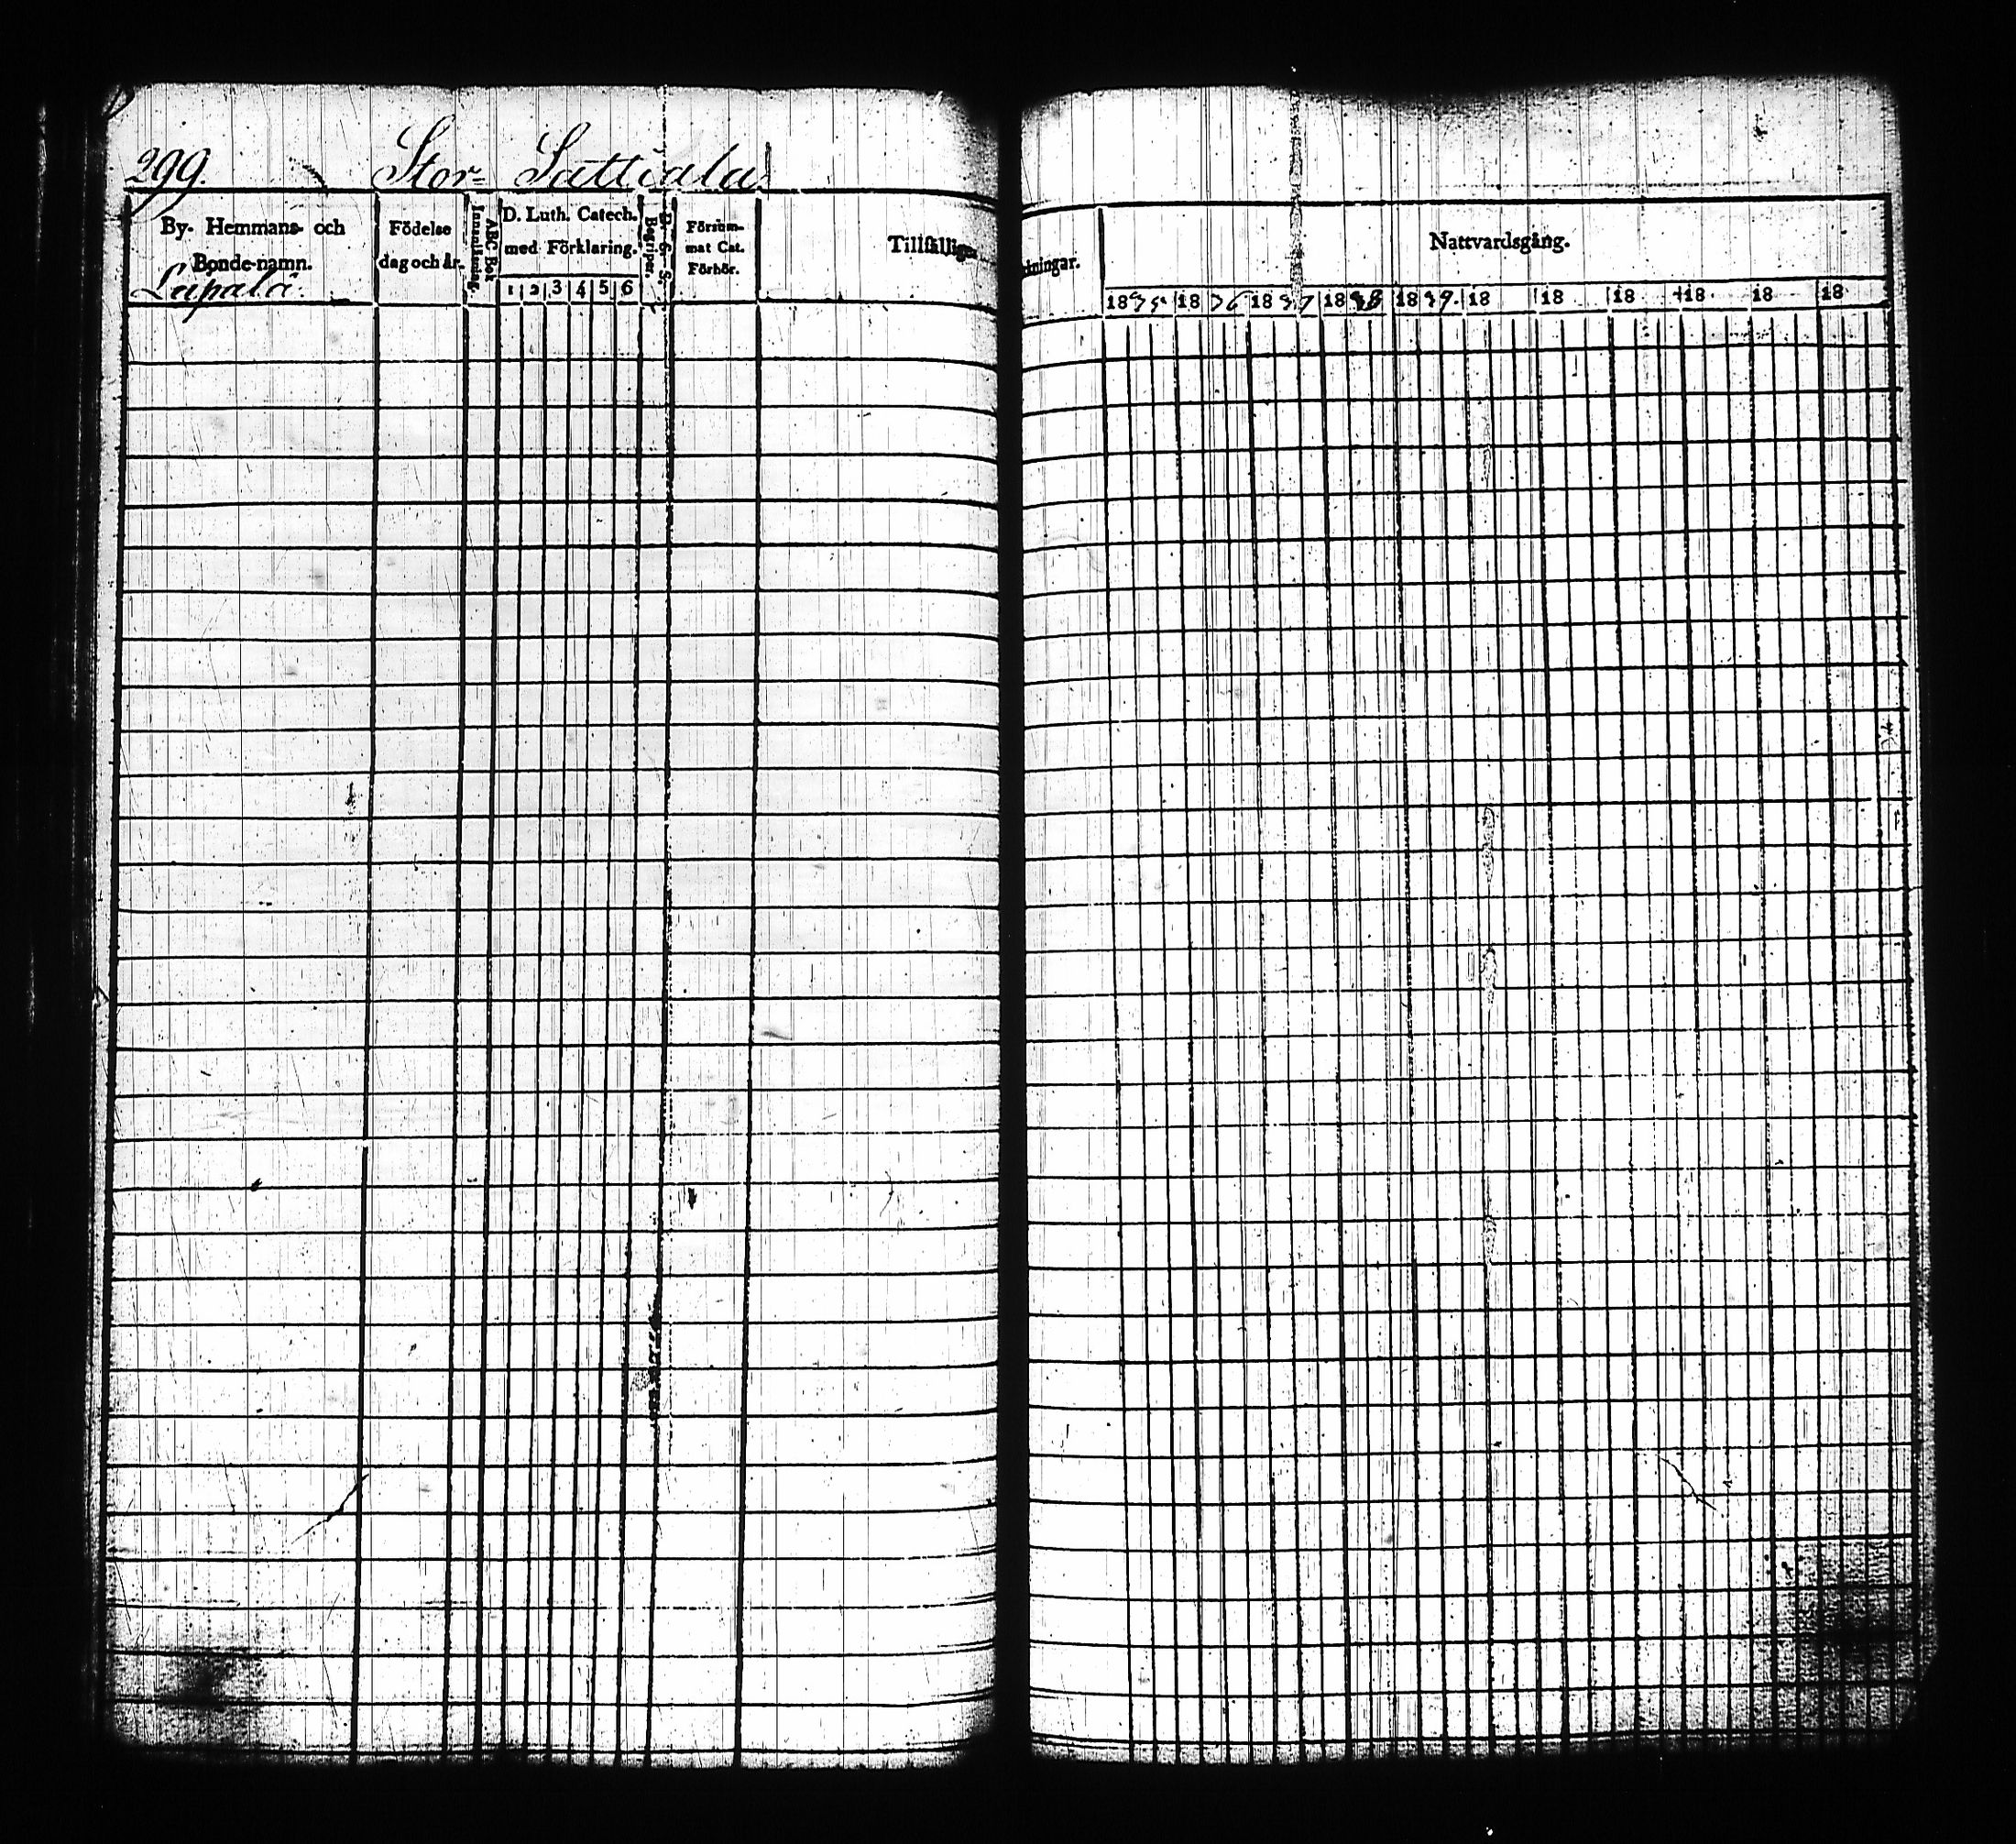 299. Stor- Sattiala
By- Hemmans- och
Bonde-namn.
Lapala
Födelse
dag och år.
ABC Bok
Innanläsning.
D. Luth. Catech.
med Förklaring.
1 2 3 4 5 6
D. G. S.
Begriper.
Försum-
mat Cat.
Förhör.
Tillfällige
dningar.
Nattvardsgång.
1835 1836 1837 1838 1839. 18 18 18 18 18 18